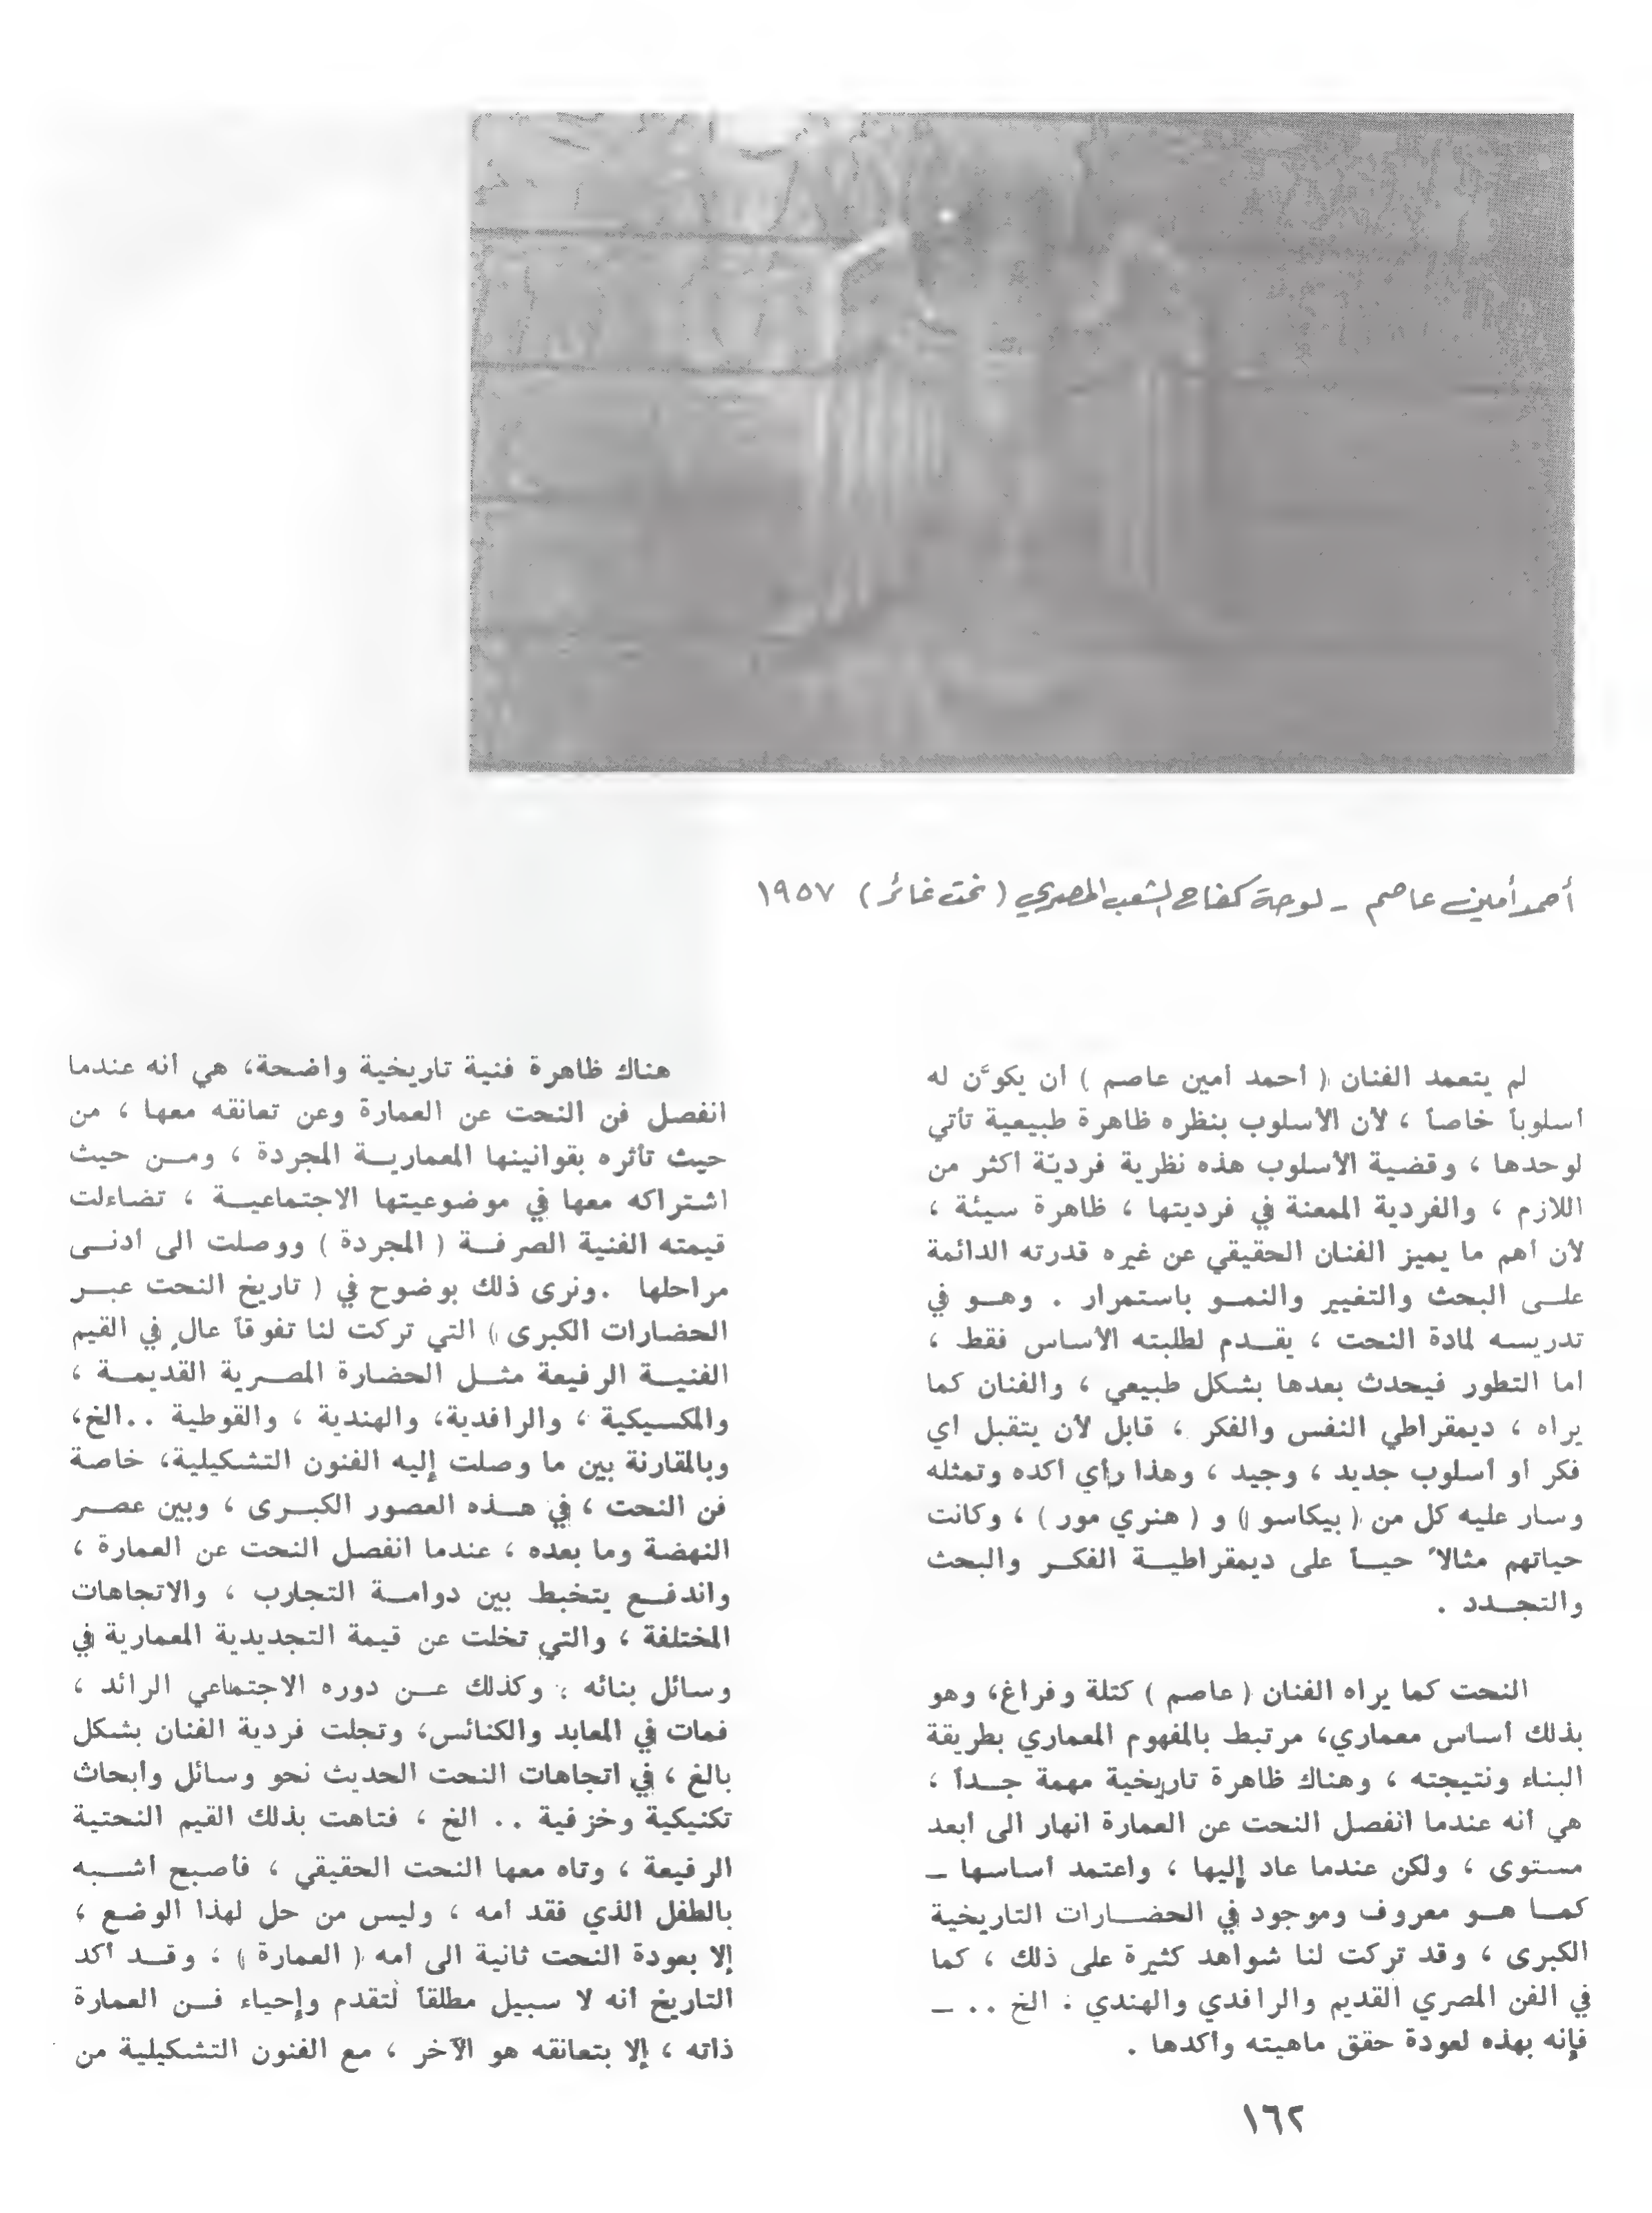 أحمد أمين عاصم - لوحة كفاح الشعب المصري ( نحت غائر ) ١٩٥٧
لم يتعمد الفنان ( أحمد أمين عاصم ) أن يكوّن له
أسلوباً خاصاً ، لأن الأسلوب بنظره ظاهرة طبيعية تأتي
لوحدها ، وقضية الأسلوب هذه نظرية فرديّة أكثر من
اللازم ، والفردية الممعنة في فرديتها ، ظاهرة سيئة ،
لأن أهم ما يميز الفنان الحقيقي عن غيره قدرته الدائمة
علـى البحث والتغيير والنمـو باستمرار . وهـو في
تدريسه لمادة النحت ، يقـدم لطلبته الأساس فقط ،
اما التطور فيحدث بعدها بشكل طبيعي ، والفنان كما
يراه ، ديمقراطي النفس والفكر ، قابل لأن يتقبل أي
فكر أو أسلوب جديد ، وجيد ، وهذا رأي أكده وتمثله
وسار عليه كل من ( بيكاسو ) و ( هنري مور ) ، وكانت
حياتهم مثالاً حيـاً على ديمقراطيـة الفكـر والبحث
والتجـدد .
النحت كما يراه الفنان ( عاصم ) كتلة وفراغ، وهو
بذلك أساس معماري، مرتبط بالمفهوم المعماري بطريقة
البناء ونتيجته ، وهناك ظاهرة تاريخية مهمة جـداً ،
هي أنه عندما انفصل النحت عن العمارة انهار الى أبعد
مستوى ، ولكن عندما عاد إليها ، وأعتمد أساسها –
كمـا هـو معروف وموجود في الحضـارات التاريخية
الكبرى ، وقد تركت لنا شواهد كثيرة على ذلك ، كما
في الفن المصري القديم والرافدي والهندي . الخ .. –
فإنه بهذه لعودة حقق ماهيته وأكدها .
هناك ظاهرة فنية تاريخية واضحة، هي أنه عندما
انفصل فن النحت عن العمارة وعن تعانقه معها ، من
حيث تأثره بقوانينها المعماريـة المجردة ، ومـن حيث
اشتراكه معها في موضوعيتها الاجتماعيـة ، تضاءلت
قيمته الفنية الصرفـة ( المجردة ) ووصلت الى أدنـى
مراحلها .ونرى ذلك بوضوح في ( تاريخ النحت عبـر
الحضارات الكبرى ) التي تركت لنا تفوقاً عالٍ في القيم
الفنيـة الرفيعة مثـل الحضارة المصرية القديمـة ،
والمكسيكية ، والرافدية، والهندية ، والقوطية ..الخ،
وبالمقارنة بين ما وصلت إليه الفنون التشكيلية، خاصة
فن النحت ، في هـذه العصور الكبـرى ، وبين عصـر
النهضة وما بعده ، عندما انفصل النحت عن العمارة ،
واندفـع يتخبط بين دوامـة التجارب ، والاتجاهات
المختلفة ، والتي تخلت عن قيمة التجديدية المعمارية في
وسائل بنائه ، وكذلك عـن دوره الاجتماعي الرائد ،
فمات في المعابد والكنائس، وتجلت فردية الفنان بشكل
بالغ ، في اتجاهات النحت الحديث نحو وسائل وأبحاث
تكنيكية وخزفية .. الخ ، فتاهت بذلك القيم النحتية
الرفيعة ، وتاه معها النحت الحقيقي ، فأصبح أشـبه
بالطفل الذي فقد أمه ، وليس من حل لهذا الوضع ،
إلا بعودة النحت ثانية الى أمه ( العمارة ) ، وقـد أكد
التاريخ أنه لا سبيل مطلقاً لتقدم وإحياء فـن العمارة
ذاته ، إلا بتعانقه هو الآخر ، مع الفنون التشكيلية من
١٦٢